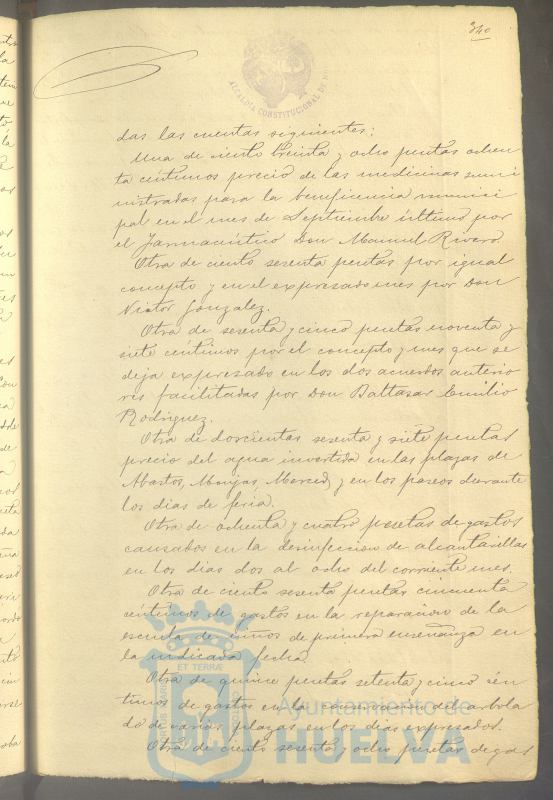 340
ALCALDIA CONSTITUCIONAL DE
das las cuentas siguientes:
Una de ciento treinta y ocho pesetas ochen
ta céntimos precio de las medicinas sumi
nistradas para la beneficencia munici
pal en el mes de Septiembre último por
el Farmacéutico Don Manuel Rivero.
Otra de ciento sesenta pesetas por igual
concepto y en el expresado mes por Don
Victor Gonzalez.
Otra de sesenta y cinco pesetas noventa y
siete céntimos por el concepto y mes que se
deja expresado en los dos acuerdos anterio
res facilitadas por Don Baltazar Emilio
Rodriguez.
Otra de doscientas sesenta y siete pesetas
precio del agua invertida en las plazas de
Abastos, Monjas, Merced y en los paseos durante
los dias de feria.
Otra de ochenta y cuatro pesetas de gastos
causados en la desinfeccion de alcantarillas
en los dias dos al ocho del corriente mes.
Otra de ciento sesenta pesetas cincuenta
céntimos de gastos en la reparacion de la
escuela de niños de primera enseñanza en
la indicada fecha.
Otra de quince pesetas setenta y cinco cén
timos de gastos en la conservacion del arbola
do de varias plazas en los dias expresados.
Otra de ciento sesenta y ocho pesetas de gas
Ayuntamiento de
HUELVA